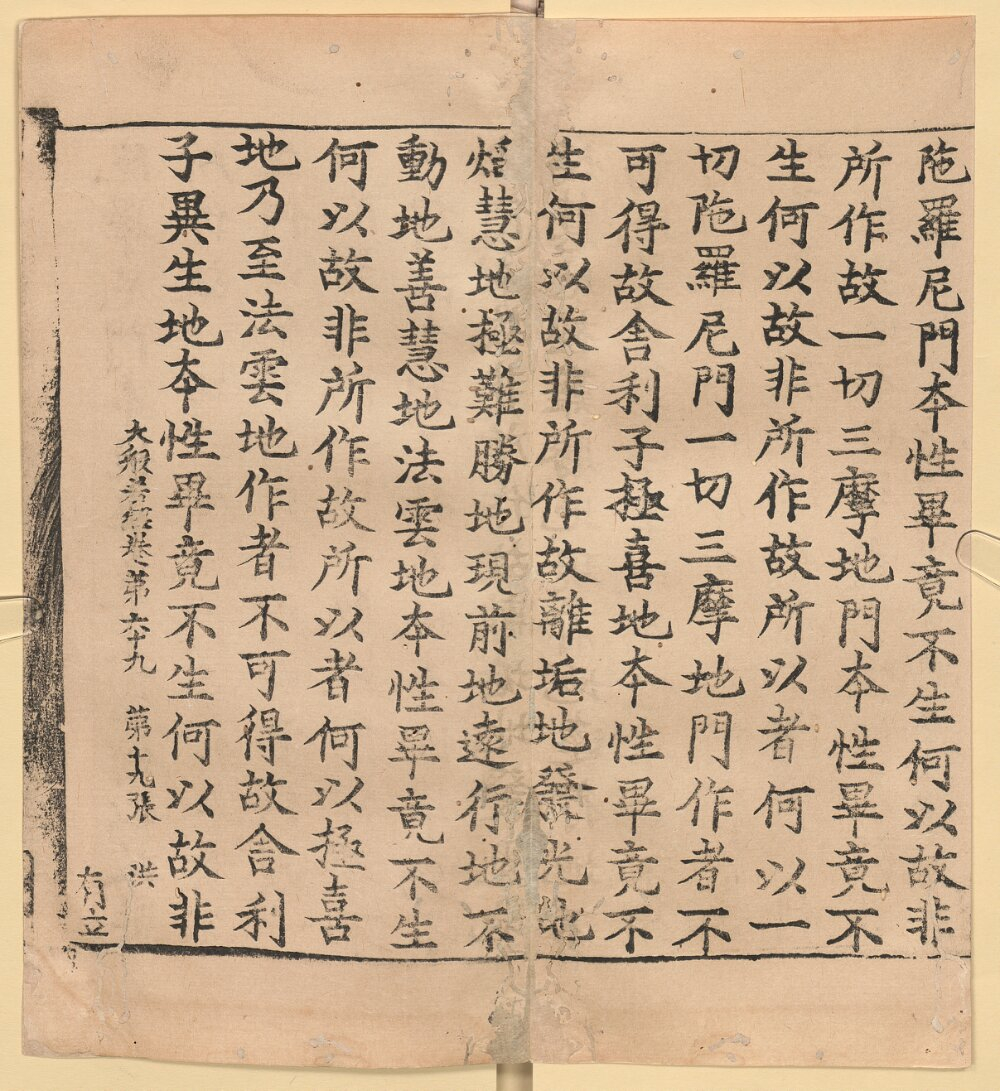 陁羅尼門本性畢竟不生何以故非
所作故一切三摩地門本性畢竟不
生何以故非所作故所以者何以一
切陁羅尼門一切三摩地門作者不
可得故舍利子極喜地本性畢竟不
生何以故非所作故離垢地發光地
焰慧地極難勝地現前地遠行地不
動地善慧地法雲地本性畢竟不生
何以故非所作故所以者何以極喜
地乃至法雲地作者不可得故舍利
子異生地本性畢竟不生何以故非
大般若經卷第六十九 第十九張 洪
有立